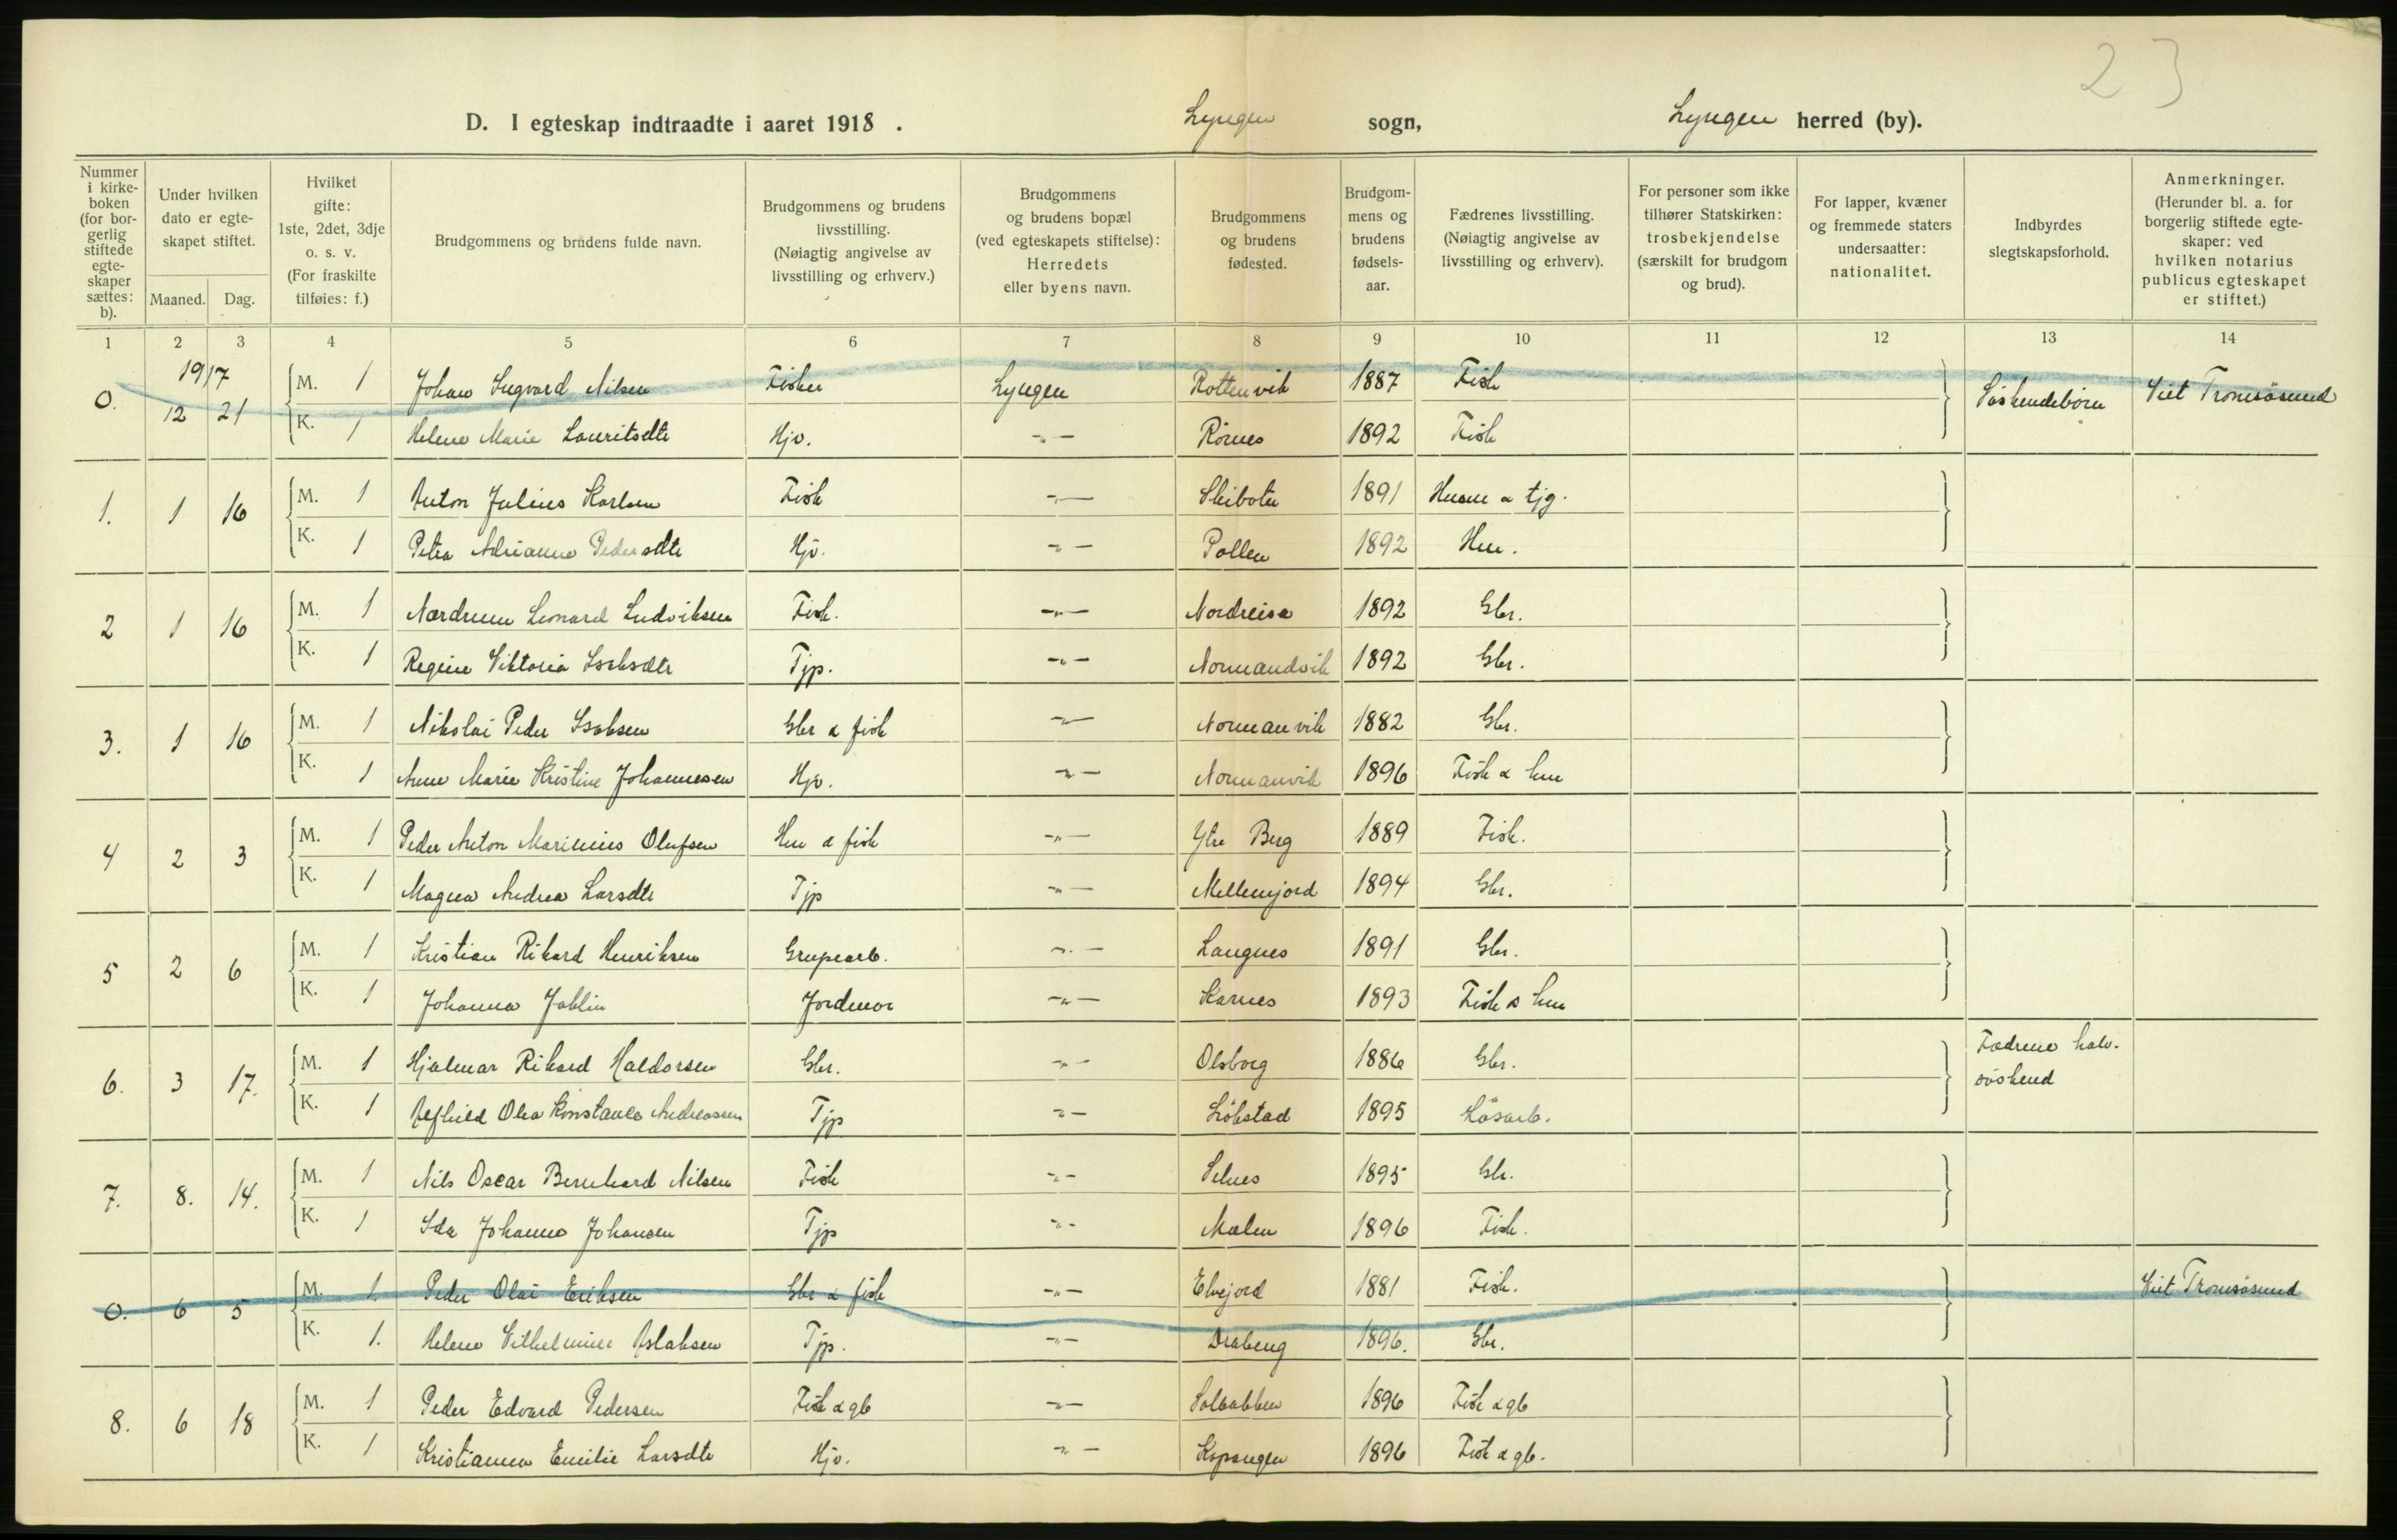 23
D. I egteskap indtraadte i aaret 1918 . Lyngen sogn, Lyngen herred (by).
Nummer i kirke-boken (for bor-gerlig stiftede egte-skaper sættes: b).
Under hvilken dato er egte-skapet stiftet.
Maaned. Dag.
Hvilket gifte: 1ste, 2det, 3dje o. s. v. (For fraskilte tilføies: f.)
Brudgommens og brudens fulde navn.
Brudgommens og brudens livsstilling. (Nøiagtig angivelse av livsstilling og erhverv.)
Brudgommens og brudens bopæl (ved egteskapets stiftelse): Herredets eller byens navn.
Brudgommens og brudens fødested.
Brudgom-mens og brudens fødsels-aar.
Fædrenes livsstilling. (Nøiagtig angivelse av livsstilling og erhverv).
For personer som ikke tilhører Statskirken: trosbekjendelse (særskilt for brudgom og brud).
For lapper, kvæner og fremmede staters undersaatter: nationalitet.
Indbyrdes slegtskapsforhold.
Anmerkninger. (Herunder bl. a. for borgerlig stiftede egte-skaper: ved hvilken notarius publicus egteskapet er stiftet.)
1 2 3 4 5 6 7 8 9 10 11 12 13 14
1917
0. 12 21 M. 1 Johan Ingvard Nilsen Fisker Lyngen Rottenvik 1887 Fisk Søskendebørn Viet Tromsøsund
K. 1 Helene Marie Lauritsdtr Hjv. -"- Rörnes 1892 Fisk
1. 1 16 M. 1 Anton Julius Karlsen Fisk -"- Skiboten 1891 Husm & tjg.
K. 1 Petra Adrianna Pedersdtr Hjv. -"- Pollen 1892 Hm.
2 1 16 M. 1 Nærdrum Leonard Ludviksen Fisk. -"- Nordreisa 1892 Gbr.
K. 1 Regine Viktoria Isaksdtr Tjp. -"- Normandvik 1892 Gbr.
3. 1 16 M. 1 Nikolai Peder Isaksen Gbr & fisk -"- Normanvik 1882 Gbr.
K. 1 Anne Marie Kristine Johannesen Hjv. -"- Normanvik 1896 Fisk & hm
4 2 3 M. 1 Peder Anton Marinius Olufsen Hm & fisk -"- Ytre Berg 1889 Fisk.
K. 1 Magna Andrea Larsdtr Tjp -"- Mellemjord 1894 Gbr.
5 2 6 M. 1 Kristian Rikard Henriksen Grupearb. -"- Langnes 1891 Gbr.
K. 1 Johanna Jahlin Jordmor -"- Karnes 1893 Fisk & hm
6. 3 17. M. 1 Hjalmar Rikard Haldorsen Gbr. -"- Olsborg 1886 Gbr. Fædrene halv-
søskend
K. 1 Alfhild Olea Konstance Andreasen Tjp -"- Lökstad 1895 Lösarb.
7. 8. 14. M. 1 Nils Oscar Bernhard Nilsen Fisk -"- Selnes 1895 Gbr.
K. 1 Ida Johanne Johansen Tjp -"- Malen 1896 Fisk.
0. 6 5 M. 1. Peder Olai Eriksen Gbr & fisk -"- Elvejord 1881 Fisk. Viet Tromsøsund
K. 1. Helene Vilhelmine Aslaksen Tjp. -"- Drabeng 1896. Gbr.
8. 6 18 M. 1 Peder Edvard Pedersen Fisk & gb -"- Solbakken 1896 Fisk & gb
K. 1 Kristianna Emilie Larsdtr Hjv. -"- Kopangen 1896 Fisk & gb.